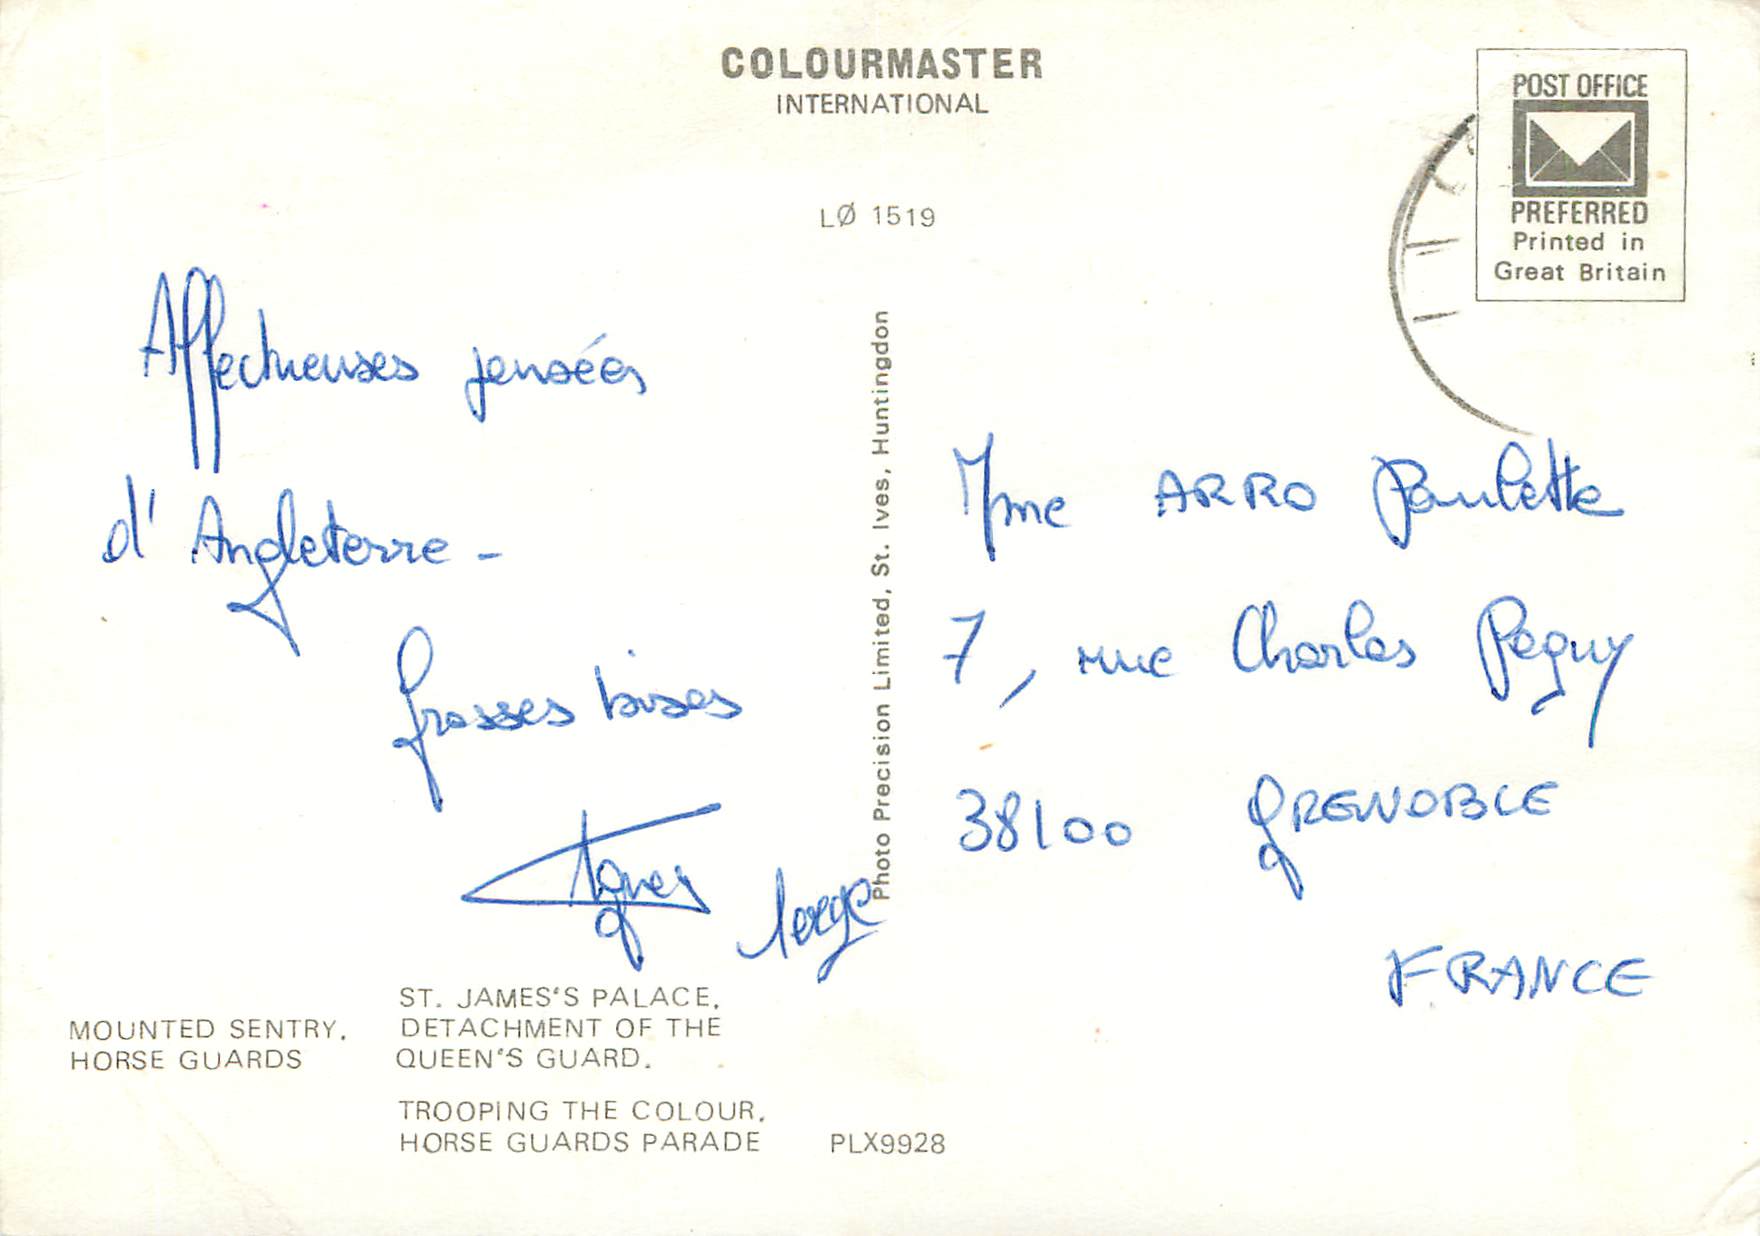 COLOURMASTER
INTERNATIONAL
POST OFFICE
PREFERRED
Printed in
Great Britain
LØ 1519
Affectueuses pensées
d'Angleterre -
Grosses bises
Agnes Serge
Photo Precision Limited, St. Ives, Huntingdon
Mme ARRO Paulette
7, rue Charles Peguy
38100 GRENOBLE
FRANCE
MOUNTED SENTRY,
HORSE GUARDS
ST. JAMES'S PALACE,
DETACHMENT OF THE
QUEEN'S GUARD.
TROOPING THE COLOUR,
HORSE GUARDS PARADE
PLX9928